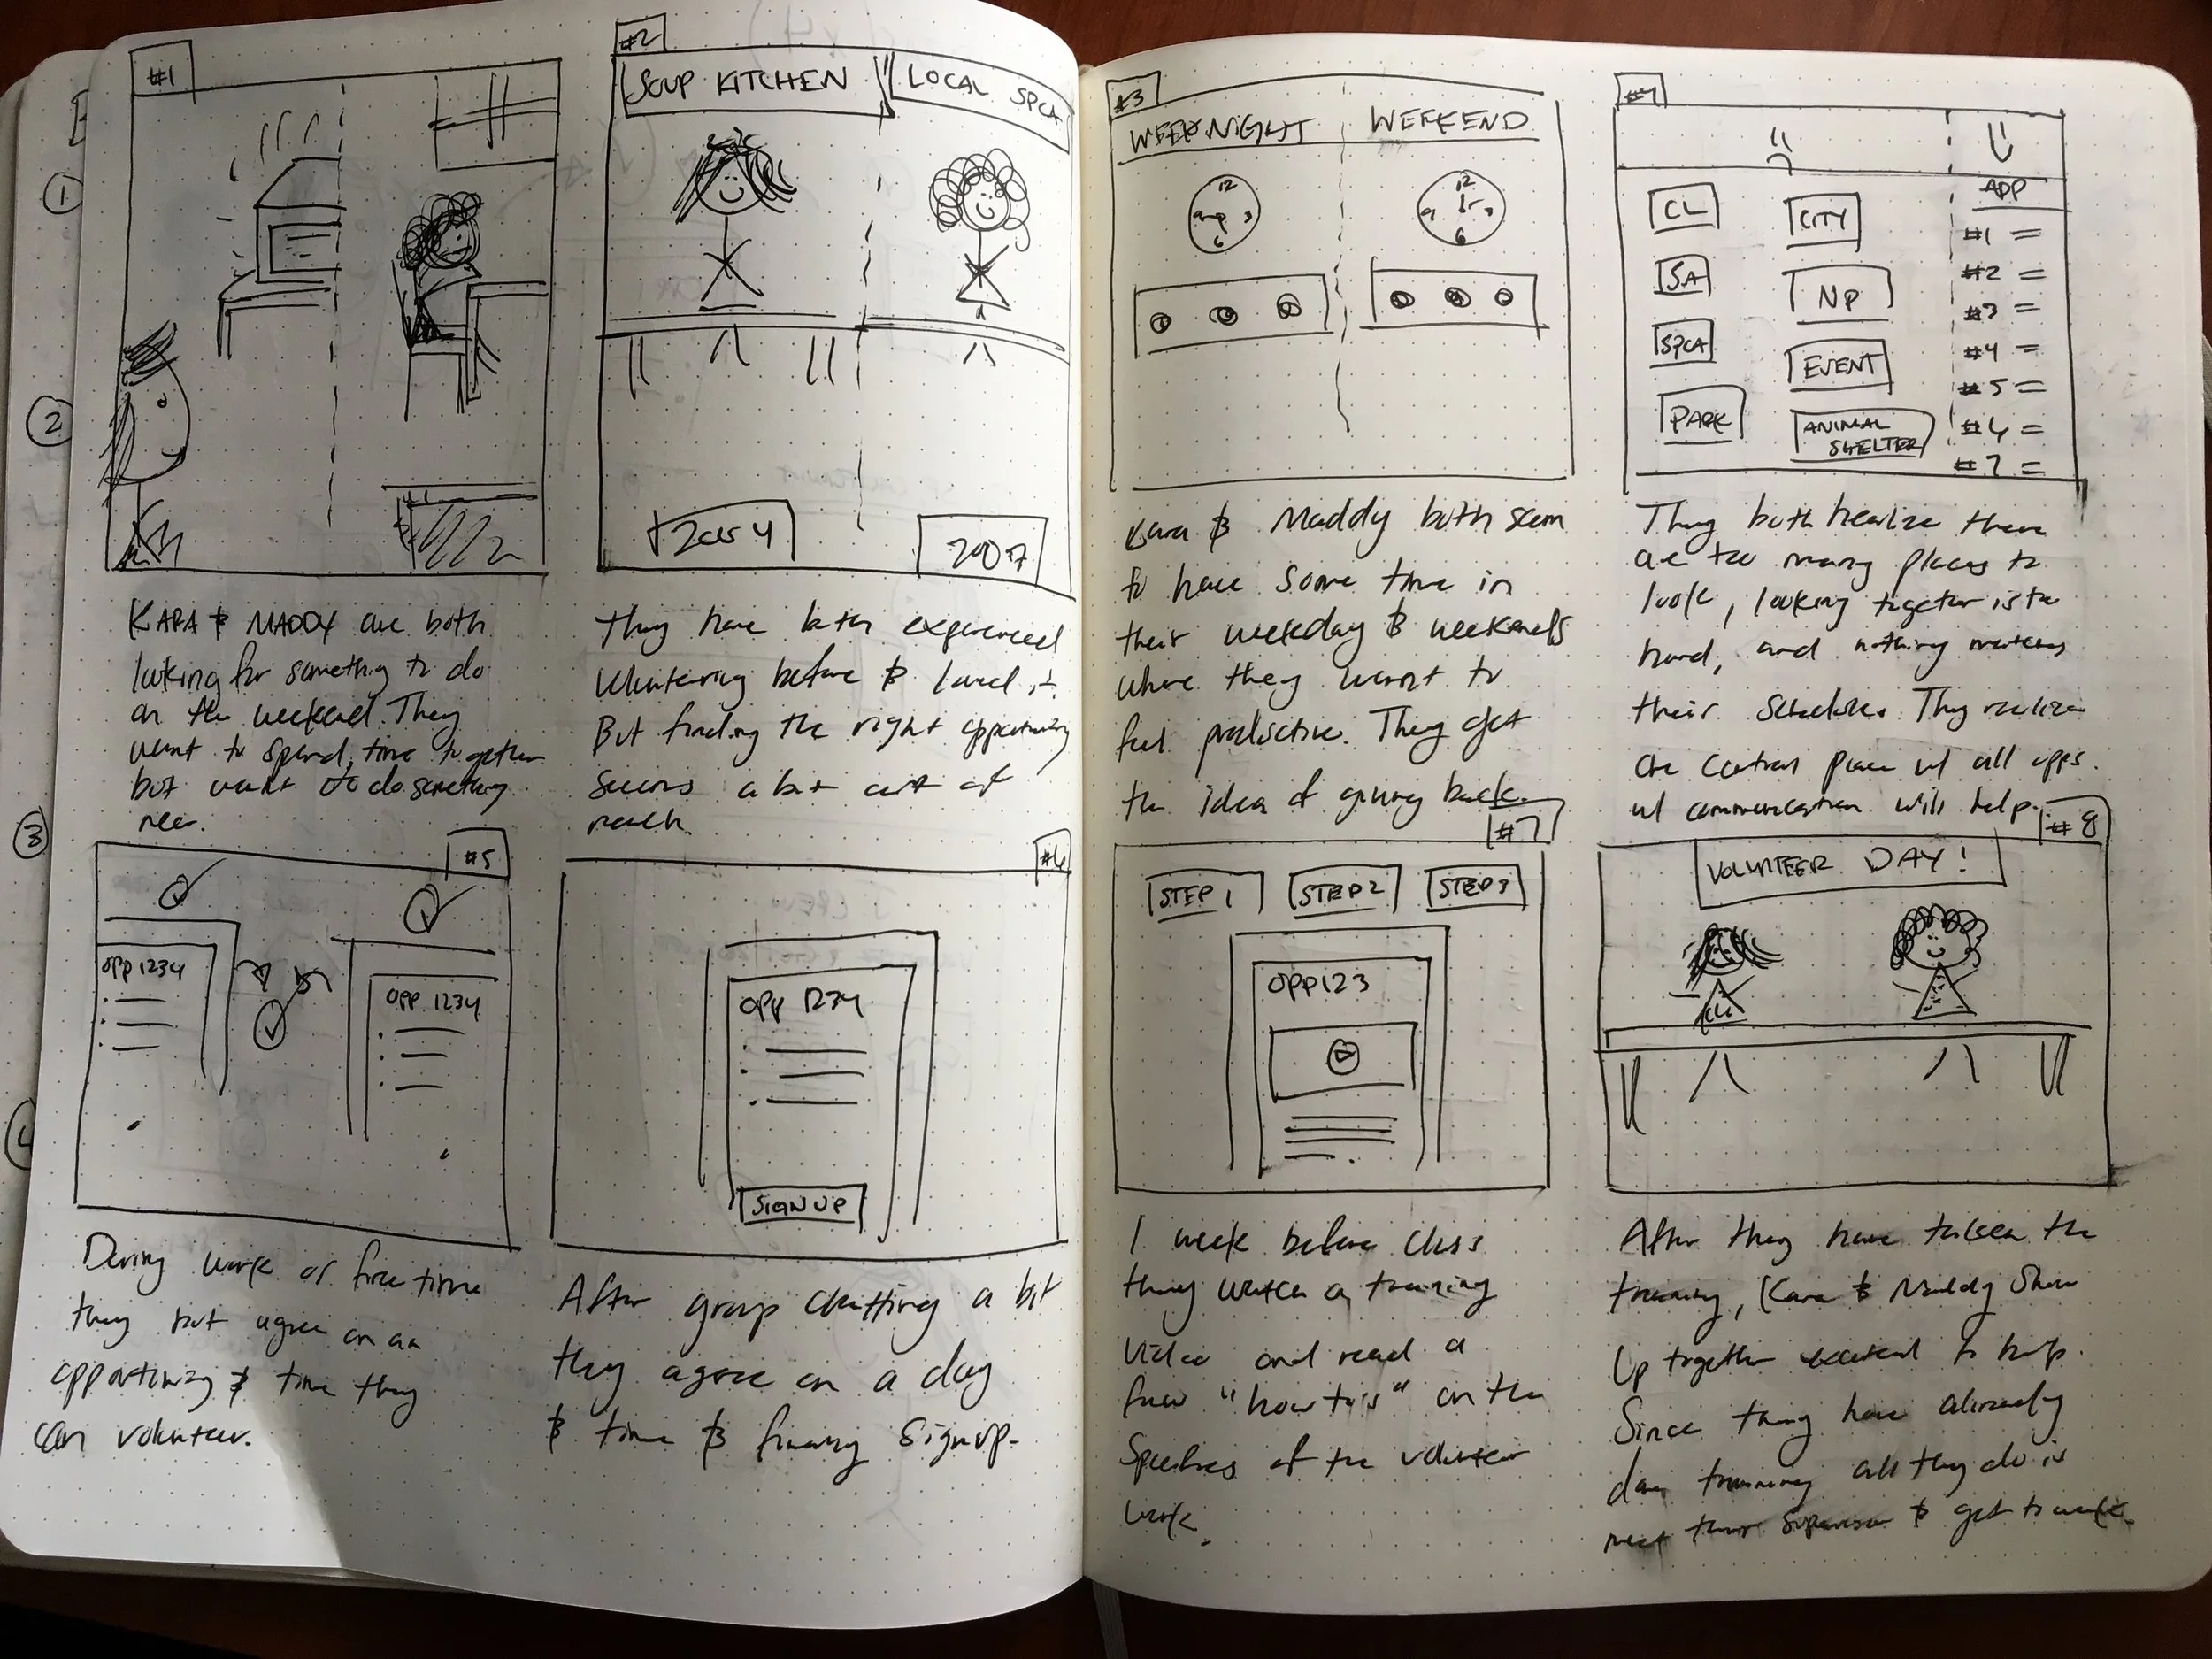 #1
KARA & MADDY are both
looking for something to do
on the weekend. They
want to spend time together
but want to do something
new.
#2
SOUP KITCHEN
LOCAL SPCA
2007
They have both experienced
volunteering before & loved it.
But finding the right opportunity
seems a bit out of
reach.
#3
WEEKNIGHT
WEEKEND
12
3
6
12
9
3
6
Kara & Maddy both seem
to have some time in
their weekday & weekends
where they want to
feel productive. They get
the idea of giving back.
#4
CL
SA
SPCA
PARK
CITY
NP
EVENT
ANIMAL
SHELTER
APP
#1
#2
#3
#4
#5
#6
#7
They both realize there
are too many places to
look, looking together is too
hard, and nothing matches
their schedules. They realize
one central place w/ all opps.
w/ communication will help.
#5
OPP 1234
OPP 1234
During work or free time
they both agree on an
opportunity & time they
can volunteer.
#6
OPP 1234
SIGN UP
After group chatting a bit
they agree on a day
& time & finally signup.
#7
STEP 1
STEP 2
STEP 3
OPP123
1 week before class
they watch a training
video and read a
few "how to's" on the
specifics of the volunteer
work.
#8
VOLUNTEER DAY!
After they have taken the
training, Kara & Maddy show
up together excited to help.
Since they have already
done training all they do is
meet their supervisor & get to work.
1
2
3
4